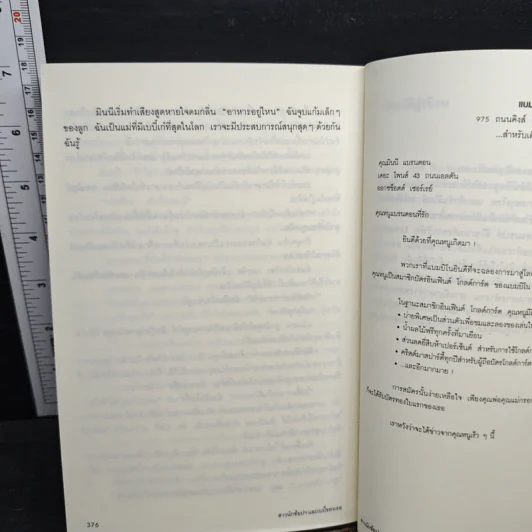 มินนีเริ่มทำเสียงสูดหายใจดมกลิ่น “อาหารอยู่ไหน” ฉันจูบแก้มเล็กๆ
ของลูก ฉันเป็นแม่ที่มีเบบี้เก๋ที่สุดในโลก เราจะมีประสบการณ์สนุกสุดๆ ด้วยกัน
ฉันรู้
376
สาวนักช้อปฯ
975 ถนนคิงส์
...สำหรับ
คุณมินนี แบรนดอน
เดอะ ไพนส์ 43 ถนนเอลตัน
ออกซ์ช็อตต์ เซอร์เรย์
คุณหนูแบรนดอนที่รัก
ยินดีด้วยที่คุณหนูเกิดมา !
พวกเราที่แบมบิโนยินดีที่จะฉลองการมาสู่โลก
คุณหนูเป็นสมาชิกบัตรอินแฟ้นต์ โกลด์การ์ด ของแบมบิโน
ในฐานะสมาชิกอินแฟ้นต์ โกลด์การ์ด คุณหนูมี
• บ่ายพิเศษเป็นส่วนตัวเพื่อชมและลองของเล่น
• น้ำผลไม้ฟรีทุกครั้งที่มาเยือน
• ส่วนลดยี่สิบห้าเปอร์เซ็นต์ สำหรับการใช้โกลด์การ์ด
• คริสต์มาสปาร์ตี้ทุกปีสำหรับผู้ถือบัตรโกลด์การ์ด
• ...และอีกมากมาย !
การสมัครนั้นง่ายเหลือใจ เพียงคุณพ่อคุณแม่
ก็จะได้รับบัตรทองใบแรกของเธอ
เราหวังว่าจะได้ข่าวจากคุณหนูเร็ว ๆ นี้